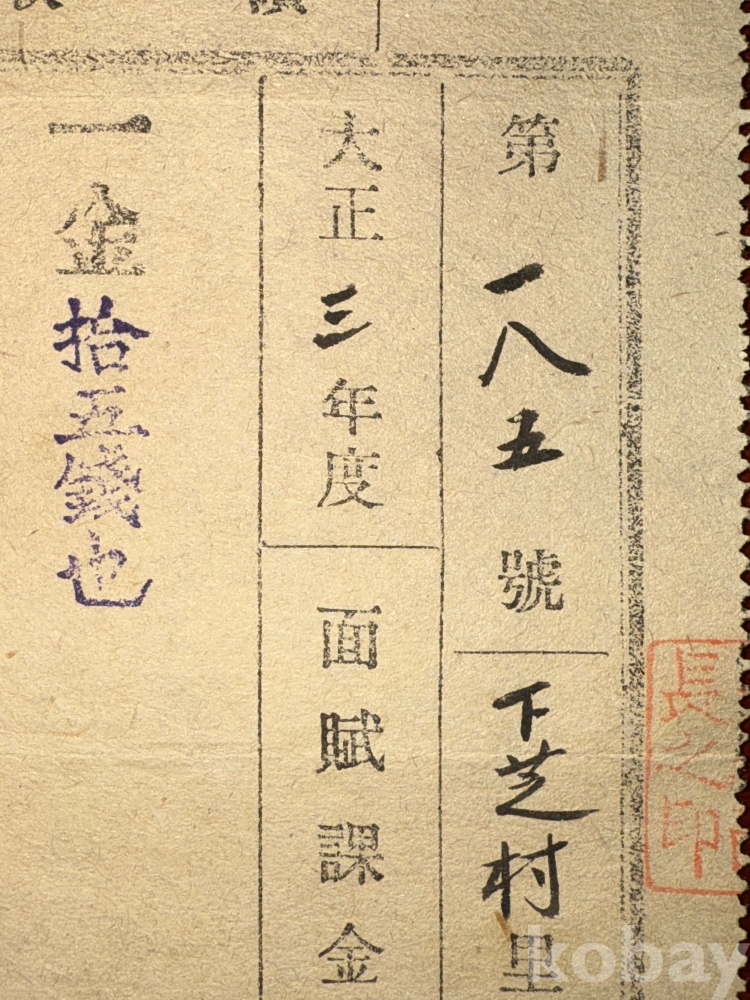 第一八五號 下芝村里
大正三年度 面賦課金
一金拾五錢也
長之印
kobay